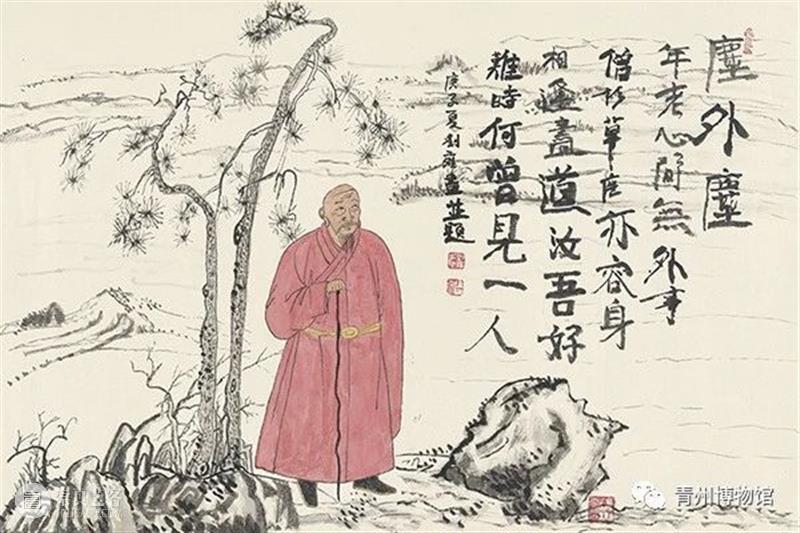 塵外塵
年老心閒無外事
僧衣草座亦容身
相逢盡道汝吾好
難時何曾見一人
庚子夏劉畫並題
青州博物馆